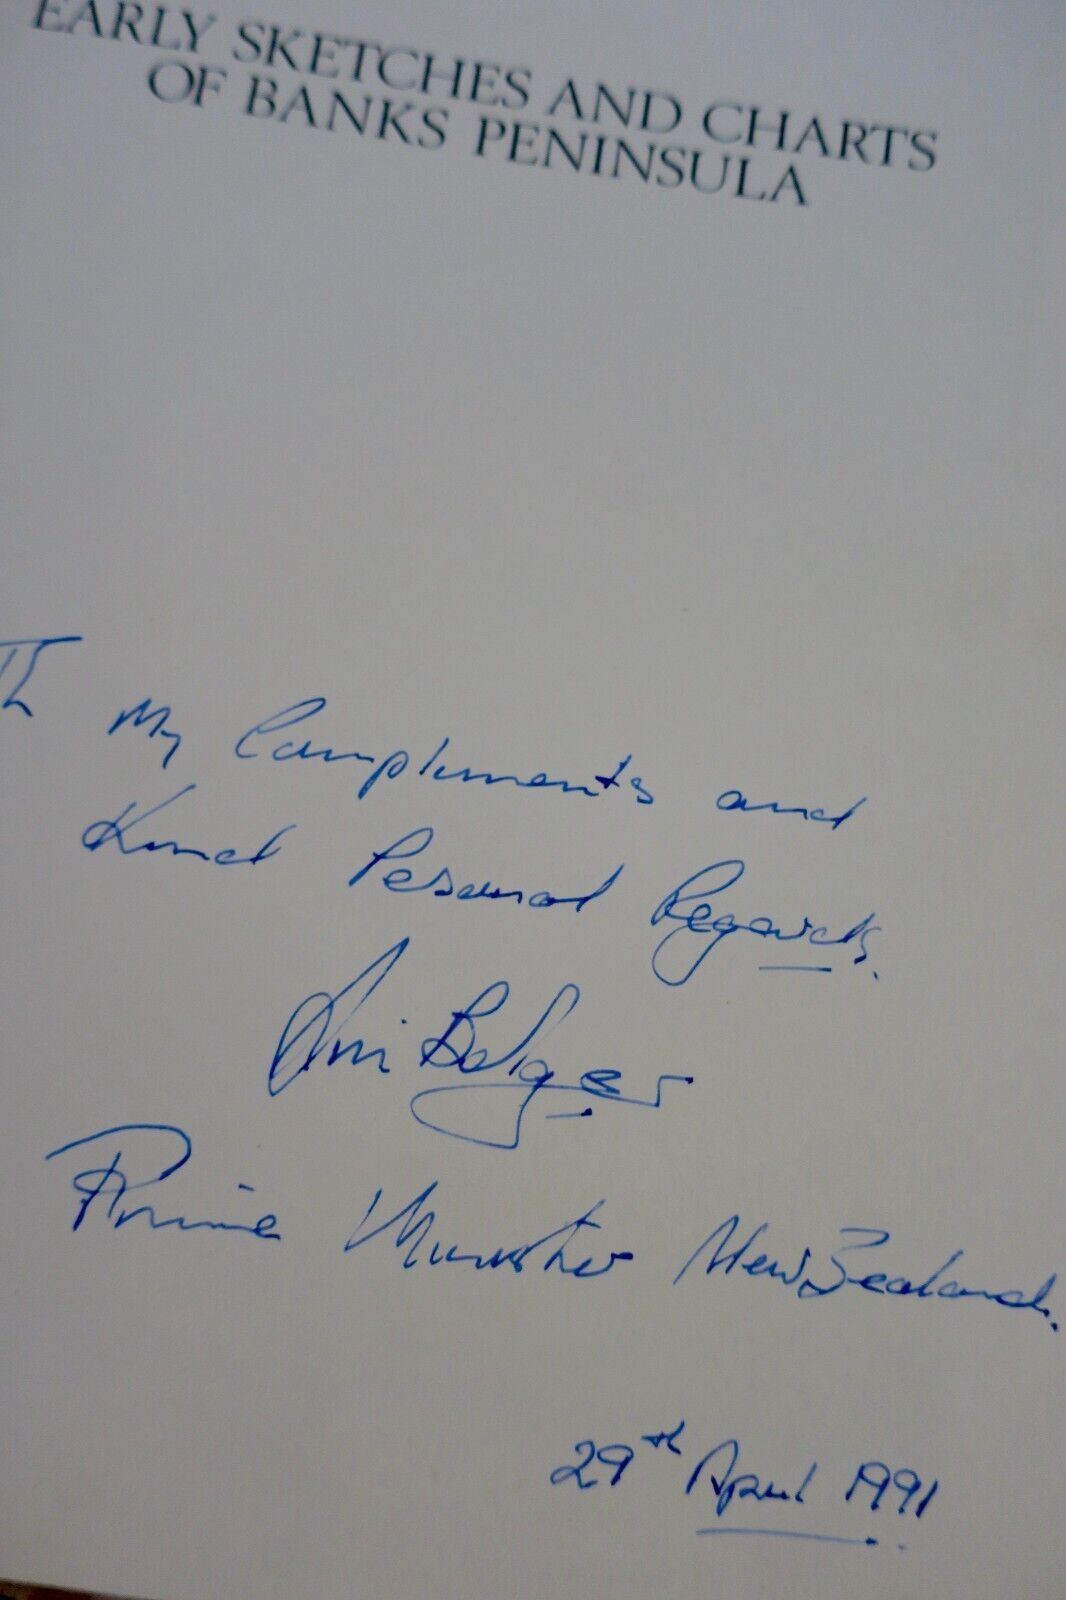 EARLY SKETCHES AND CHARTS
OF BANKS PENINSULA
Th My Compliments and
Kind Personal Regards.
Jim Bolger
Prime Minister New Zealand.
29th April 1991